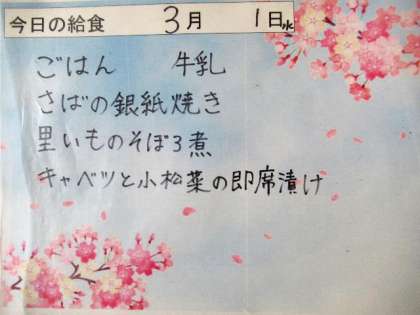 今日の給食 3月 1日水
ごはん 牛乳
さばの銀紙焼き
里いものそぼろ煮
キャベツと小松菜の即席漬け